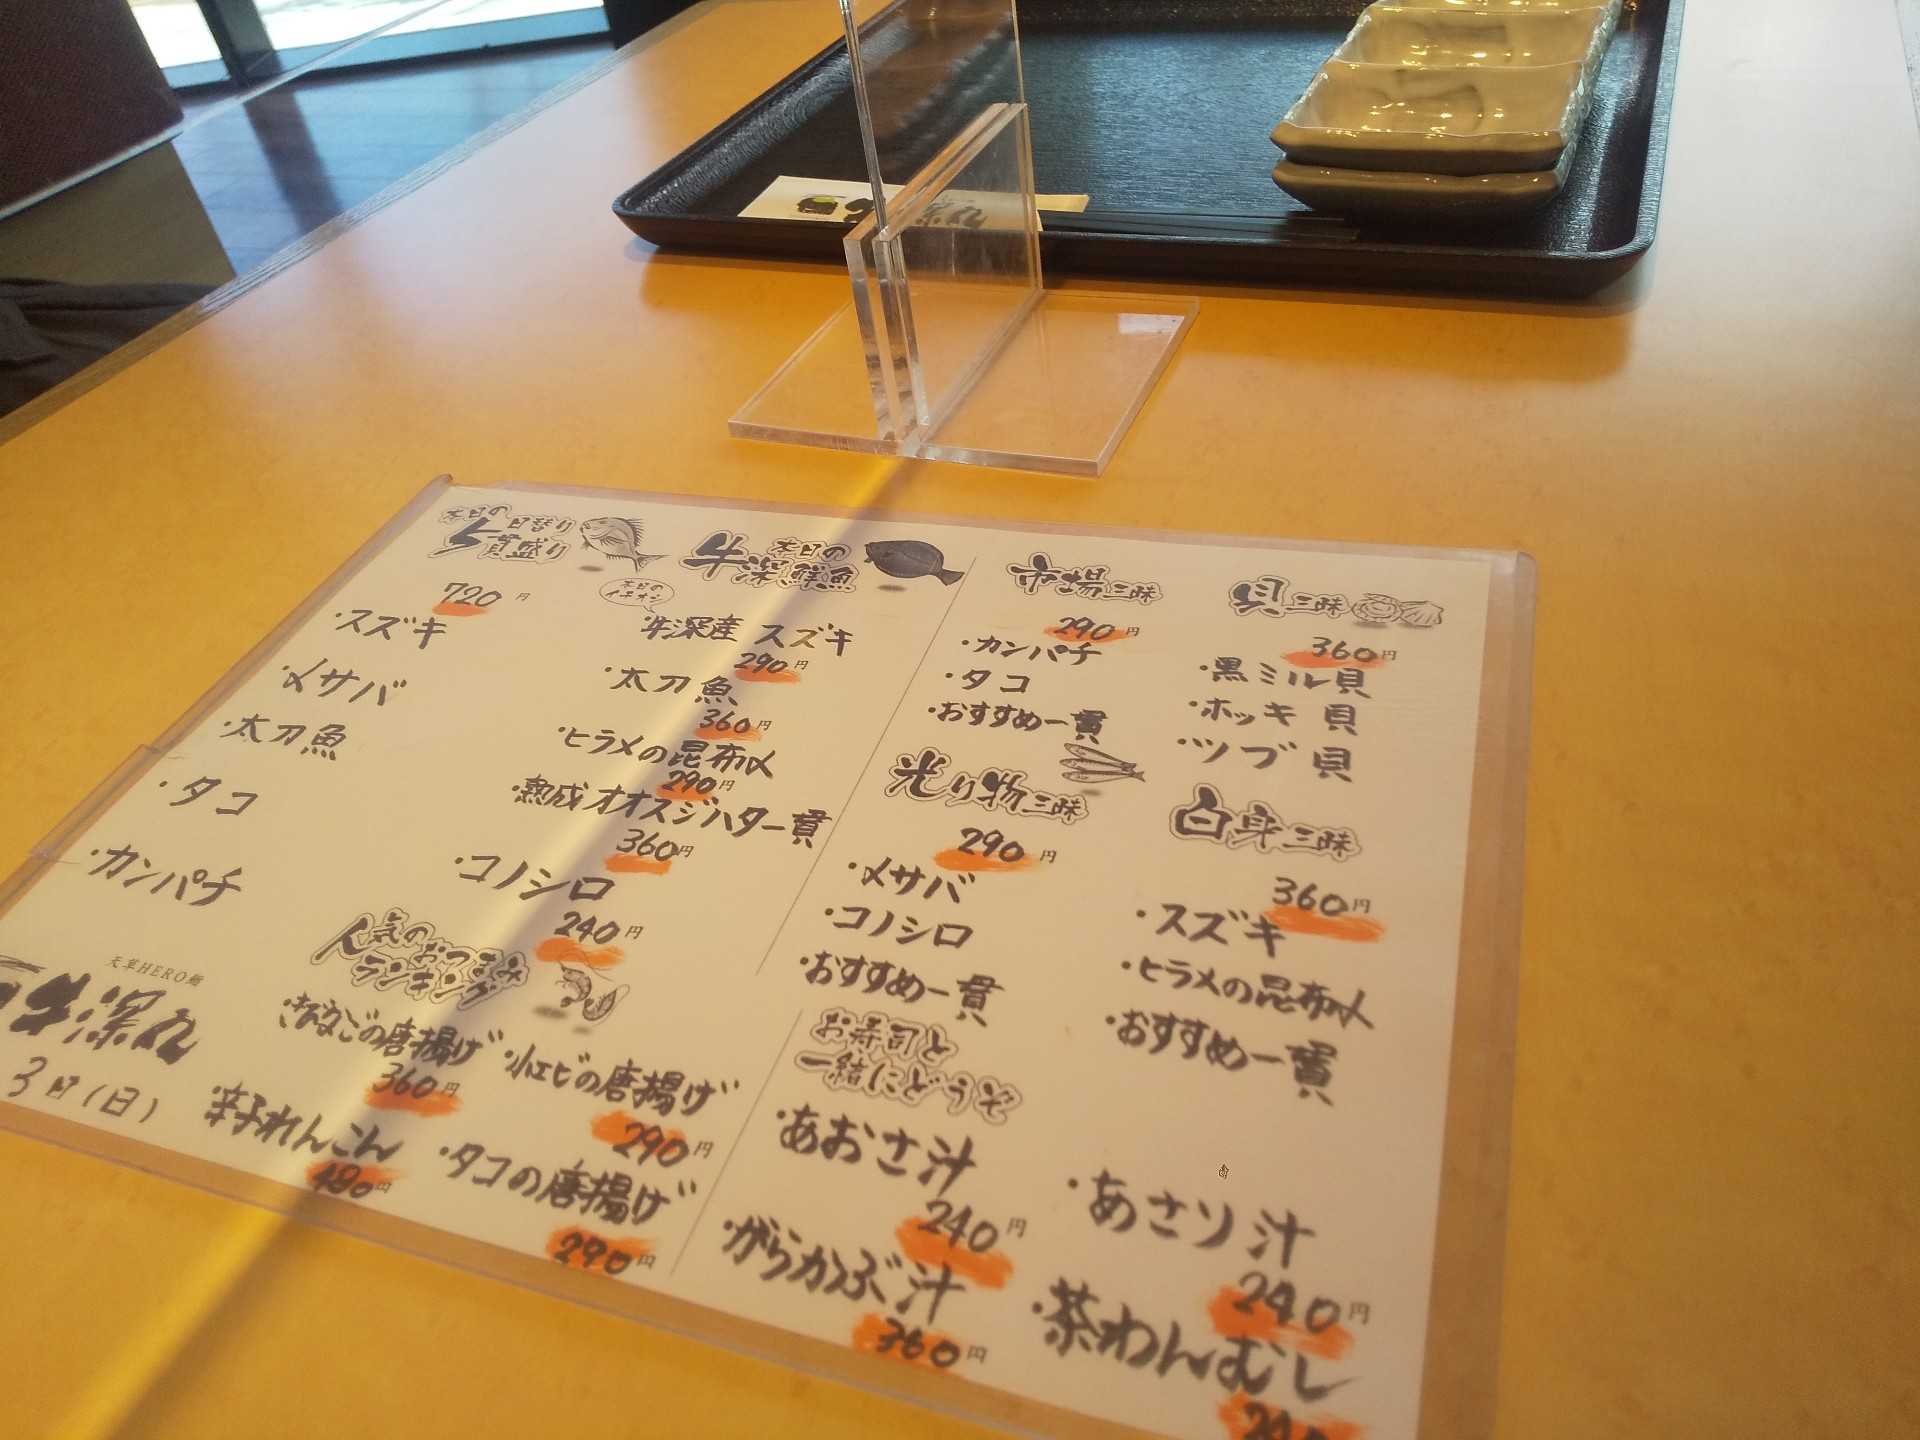 本日の
日替り
5貫盛り
720円
・スズキ
・〆サバ
・太刀魚
・タコ
・カンパチ
本日の
牛深鮮魚
本日の
イチオシ
・牛深産 スズキ
290円
・太刀魚
360円
・ヒラメの昆布〆
290円
・熟成オオスジハタ一貫
360円
・コノシロ
240円
人気の
おつまみ
ランキング
・きびなごの唐揚げ
360円
・小エビの唐揚げ
290円
・辛子れんこん
480円
・タコの唐揚げ
290円
天草HERO鮨
牛深丸
3日(日)
市場三昧
290円
・カンパチ
・タコ
・おすすめ一貫
貝三昧
360円
・黒ミル貝
・ホッキ貝
・ツブ貝
光り物三昧
290円
・〆サバ
・コノシロ
・おすすめ一貫
白身三昧
360円
・スズキ
・ヒラメの昆布〆
・おすすめ一貫
お寿司と
一緒にどうぞ
・あおさ汁
240円
・あさり汁
240円
・がらかぶ汁
360円
・茶わんむし
240